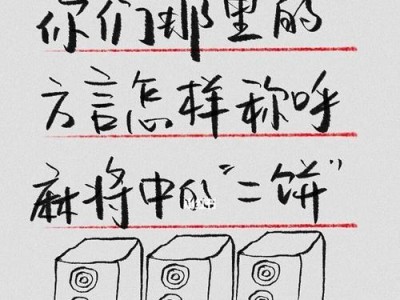 你们那里的
方言怎样称呼
麻将中的“二饼”